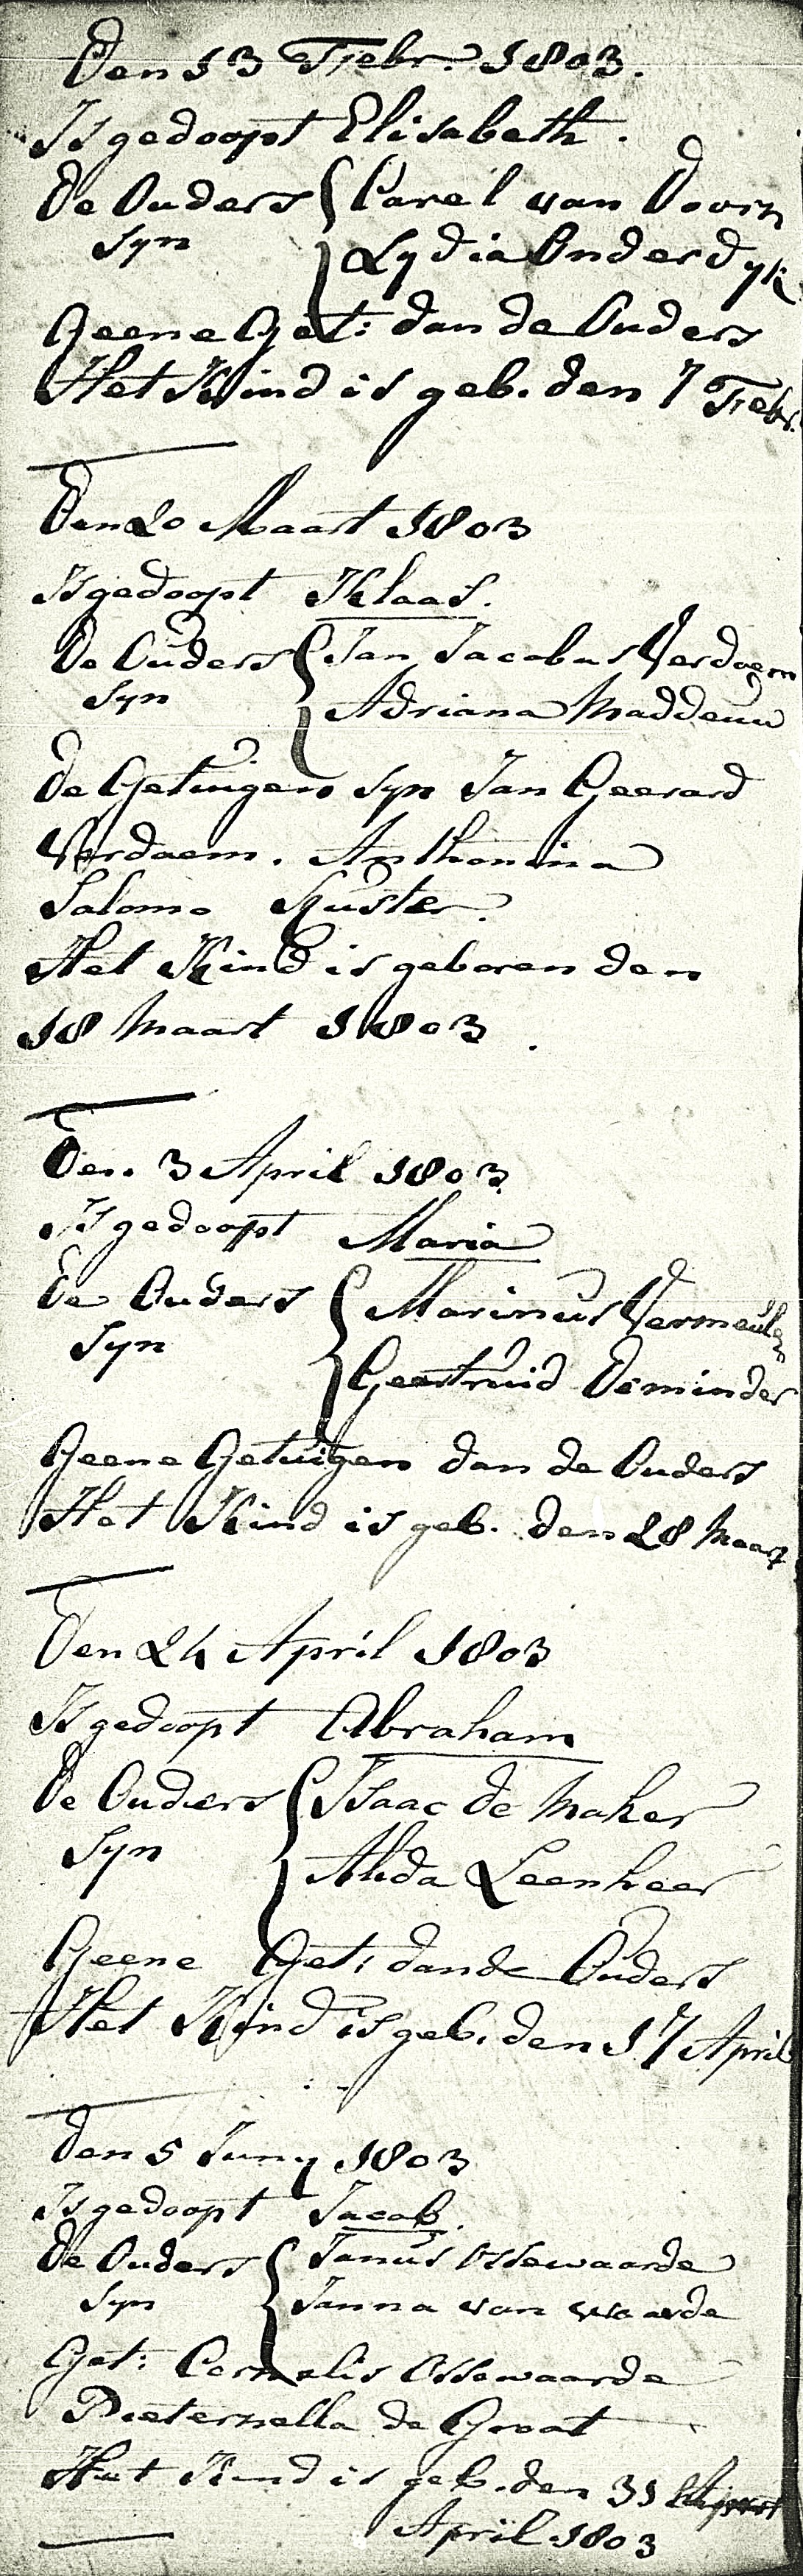 Den 13 Febr. 1803.
Is gedoopt Elisabeth.
De Ouders { Carel van Doorn
syn { Lydia Onderdyk
Geene Get: dan de Ouders
Het Kind is geb. den 7 Febr.
Den 20 Maart 1803
Is gedoopt Klaas.
De Ouders { Jan Jacobus Verdaem
syn { Adriana Maddeuw
de Getuigen syn Jan Geerard
Verdaem. Anthonina
Salomo Kuster.
Het Kind is geboren den
18 Maart 1803.
Den 3 April 1803.
Is gedoopt Maria
de Ouders { Marinus Vermeulen
syn { Geertruid Deminder
Geene Getuigen dan de Ouders
Het Kind is geb. den 28 Maart
Den 24 April 1803
Is gedoopt Abraham
De Ouders { Isaac de Maker
syn { Alida Leenheer
Geene Get: dan de Ouders
Het Kind is geb. den 17 April
Den 5 Juny 1803
Is gedoopt Jacob.
De Ouders { Janus Ossewaarde
syn { Janna van Waarde
Get: Cornelis Ossewaarde
Pieternella de Groot
Het Kind is geb. den 31
April 1803